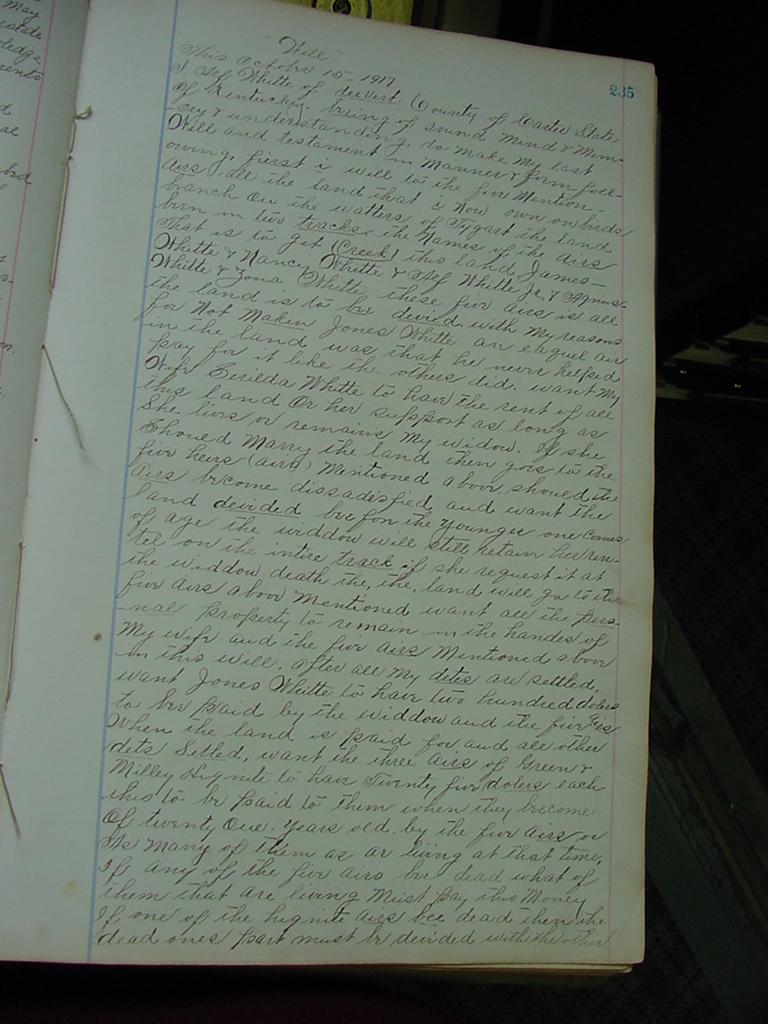 "Will"
235
This October 15- 1917
I. Jef Whitte of deevert. County of Carter State
of Kentucky. being of sound Mind & Mem-
-ory & understanding, do make My last
Will and testament in Manner & form foll-
owing, first i will to the five Mention-
airs all the land that is Now own on birds
branch on the watters of Tygart the land
bein in two tracks the Names of the airs
That is to get (Creek) this land, James-
Whitte & Nancy Whitte & Jef Whitte Jr, & Agnus-
Whitte & Zona Whitte these five airs is all
the land is to bee devied, with My reasons
for Not Maken Jones Whitte an eaquel air
in the land was that he never helped
pay for it like the others did. want My
Wife Serilda Whitte to have the rent of all
this land Or her suppsort as long as
She lives or remains My widow. If she
Shoued Marry the land then goes to the
five heirs (airs) Mentioned above, should the
airs become dissadesfied and want the
land devided befor the younger one comes
of age the widdow will still retain her ren-
tel on the intire track if she request it at
the widdow death the, the, land will go to the
five airs above Mentioned want all the pers-
-nal property to remain in the handes of
My wife and the five airs Mentioned above
in this will. after all My detes are settled,
want Jones Whitte to have two hundred dolers
to bee paid by the widdow and the five airs
When the land is paid for and all other
dets Setled, want the three airs of Green &
Milley Lignite to have Twenty five dolers each
this to be paid to them when they become
Of twenty One. years old, by the five airs or
As Many of them as ar living at that time,
If any of the five airs bee dead what of
them that are living Must pay this Money
If one of the airs bee dead then the
dead ones part must be devided with the other